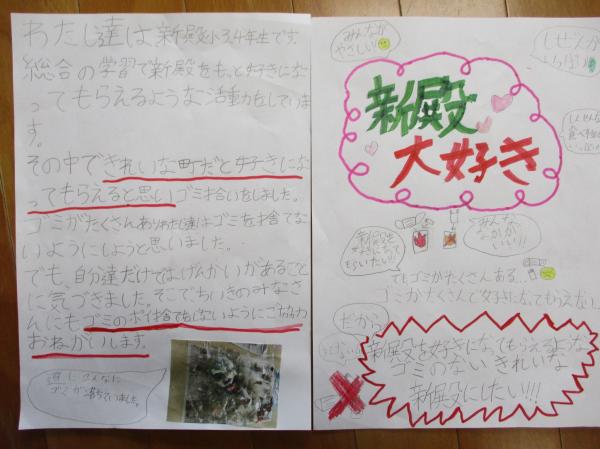 わたし達は新殿小3,4年生です。
総合の学習で新殿をもっと好きにな
ってもらえるような活動をしていま
す。
その中できれいな町だと好きにな
ってもらえると思いゴミ拾いをしました。
ゴミがたくさんありわたし達はゴミを捨てな
いようにしようと思いました。
でも、自分達だけではげんかいがあること
に気づきました。そこでちいきのみなさ
んにもゴミのポイ捨てをしないように
おねがいします。
道にこんなに
ゴミが落ちていました。
みんなが
やさしい!!
しぜんが
新殿
大好き
新殿を
好きになって
もらいたい!!
みんな
なかが
いい!!
でもゴミがたくさんある…
ゴミがたくさんで好きになってもらえない…
だから
新殿を好きになってもらえるような
ゴミのないきれいな
新殿にしたい!!!